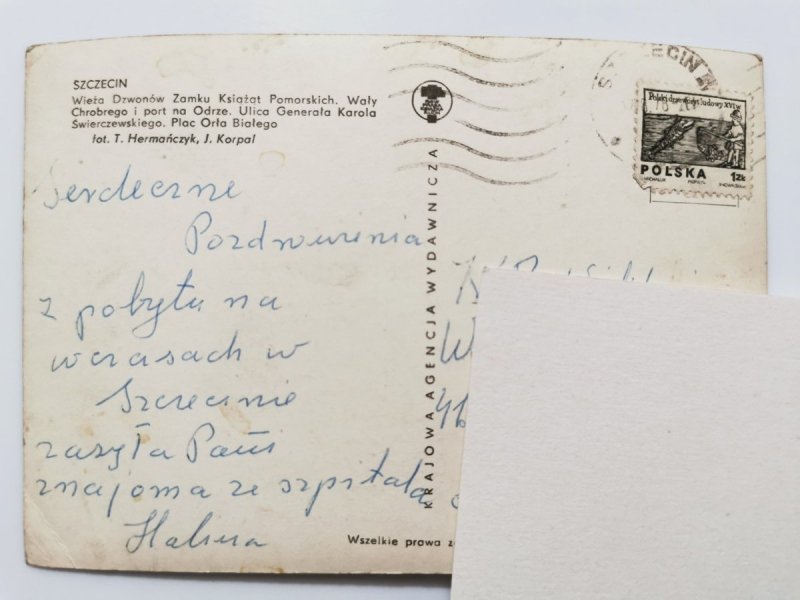 SZCZECIN
Wieża Dzwonów Zamku Książąt Pomorskich. Wały
Chrobrego i port na Odrze. Ulica Generała Karola
Świerczewskiego. Plac Orła Białego
fot. T. Hermańczyk, J. Korpal
Serdeczne
Pozdrowienia
z pobytu na
wczasach w
Szczecinie
zasyła Pani
znajoma ze szpitala
Halina
KRAJOWA AGENCJA WYDAWNICZA
Wszelkie prawa
SZCZECIN
Polski drzeworyt ludowy XVI w.
POLSKA 1zł